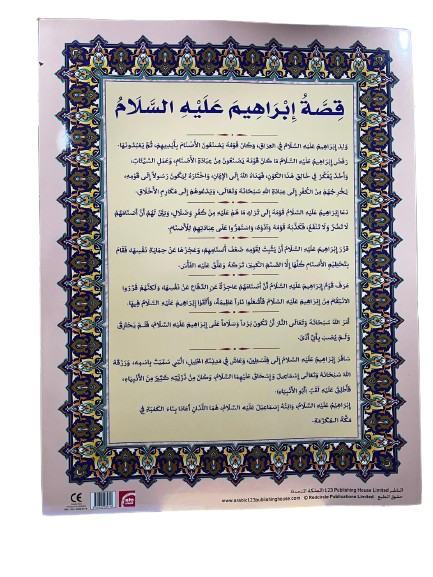 قِصَّةُ إِبْرَاهِيمَ عَلَيْهِ السَّلَامُ
وُلِدَ إِبراهيمُ عَلَيْهِ السَّلامُ في العِراقِ، وَكانَ قَوْمُهُ يَصْنَعُونَ الأَصْنامَ بِأَيْدِيهِمْ، ثُمَّ يَعْبُدُونَها.
رَفَضَ إِبراهيمُ عَلَيْهِ السَّلامُ ما كانَ قَوْمُهُ يَصْنَعُونَ مِنْ عِبادَةِ الأَصْنامِ، وَعَمَلِ السَّيِّئاتِ،
وَأَخَذَ يُفَكِّرُ في خالِقِ هَذا الكَوْنِ، فَهَداهُ اللهُ إِلى الإِيمانِ، وَاخْتارَهُ لِيَكُونَ رَسُولاً إِلى قَوْمِهِ،
يُخْرِجُهُمْ مِنَ الكُفْرِ إِلى عِبادَةِ اللهِ سُبْحانَهُ وَتَعالى، وَيَدْعُوهُمْ إِلى مَكارِمِ الأَخْلاقِ.
دَعا إِبراهيمُ عَلَيْهِ السَّلامُ قَوْمَهُ إِلى تَرْكِ ما هُمْ عَلَيْهِ مِنْ كُفْرٍ وَضَلالٍ، وَبَيَّنَ لَهُمْ أَنَّ أَصْنامَهُمْ
لا تَضُرُّ وَلا تَنْفَعُ، فَكَذَّبَهُ قَوْمُهُ وَآذَوْهُ، وَاسْتَمَرُّوا عَلى عِبادَتِهِمْ لِلأَصْنامِ.
قَرَّرَ إِبراهيمُ عَلَيْهِ السَّلامُ أَنْ يُثْبِتَ لِقَوْمِهِ ضَعْفَ أَصْنامِهِمْ، وَعَجْزَها عَنْ حِمايَةِ نَفْسِها، فَقامَ
بِتَحْطِيمِ الأَصْنامِ كُلِّها إِلّا الصَّنَمَ الكَبِيرَ، تَرَكَهُ وَعَلَّقَ عَلَيْهِ الفَأْسَ.
عَرَفَ قَوْمُ إِبراهيمَ عَلَيْهِ السَّلامُ أَنَّ أَصْنامَهُمْ عاجِزَةٌ عَنِ الدِّفاعِ عَنْ نَفْسِها، وَلَكِنَّهُمْ قَرَّرُوا
الانْتِقامَ مِنْ إِبراهيمَ عَلَيْهِ السَّلامُ فَأَشْعَلُوا ناراً عَظِيمَةً، وَأَلْقَوْا إِبراهيمَ عَلَيْهِ السَّلامُ فِيها.
أَمَرَ اللهُ سُبْحانَهُ وَتَعالى النّارَ أَنْ تَكُونَ بَرْداً وَسَلاماً عَلى إِبراهيمَ عَلَيْهِ السَّلامُ، فَلَمْ يَحْتَرِقْ
وَلَمْ يُصَبْ بِأَيِّ أَذىً.
سافَرَ إِبراهيمُ عَلَيْهِ السَّلامُ إِلى فِلَسْطِينَ، وَعاشَ في مَدِينَةِ الخَلِيلِ، الَّتِي سُمِّيَتْ بِاسْمِهِ، وَرَزَقَهُ
اللهُ سُبْحانَهُ وَتَعالى إِسْماعِيلَ وَإِسْحاقَ عَلَيْهِما السَّلامُ، وَكانَ مِنْ ذُرِّيَّتِهِ كَثِيرٌ مِنَ الأَنْبِياءِ،
فَأُطْلِقَ عَلَيْهِ لَقَبُ أَبُو الأَنْبِياءِ.
إِبراهيمُ عَلَيْهِ السَّلامُ، وَابْنُهُ إِسْماعِيلُ عَلَيْهِ السَّلامُ، هُما اللَّذانِ أَعادا بِناءَ الكَعْبَةِ في
مَكَّةَ المُكَرَّمَةِ.
الناشر 123 Publishing House Limited
www.arabic123publishinghouse.com © Redcircle Publications Limited حقوق الطبع
CE